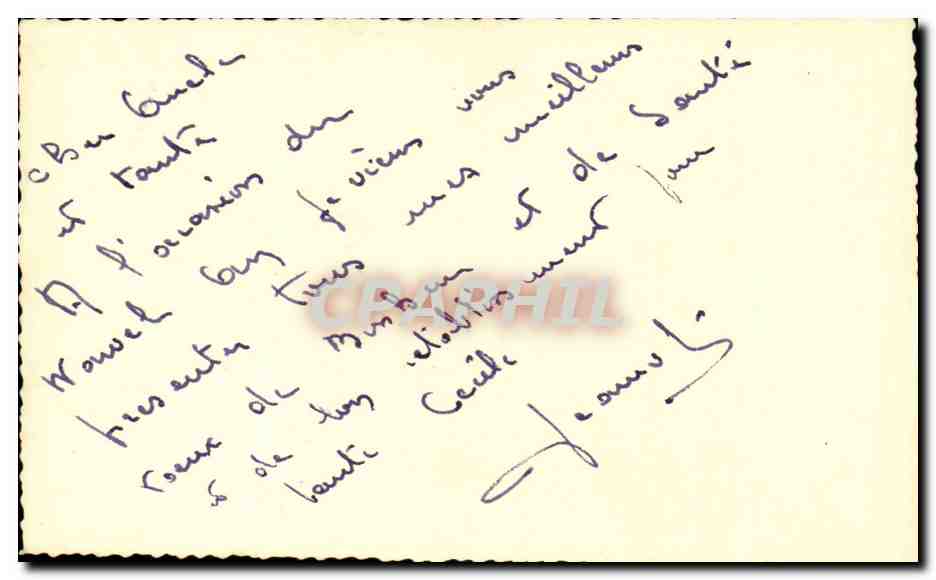 Cher Oncle
et tante
A l'occasion du
Nouvel An je viens vous
presenter tous mes meilleurs
voeux de Bonheur et de Santé
et de bon rétablissement pour
tante Cécile
CPARPHIL